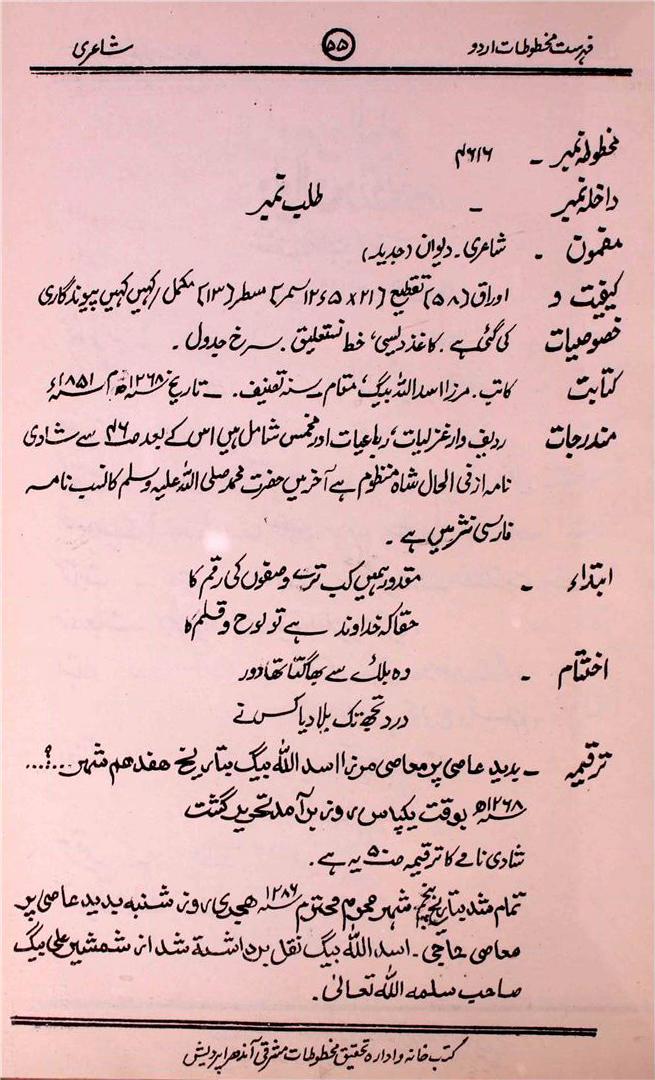 فہرست مخطوطات اردو ۵۵ شاعری
مخطوطہ نمبر ۔ ۴۶۱۶
داخلہ نمبر ۔ طلب نمبر
مضمون ۔ شاعری ۔ دیوان (جدید)
کیفیت و اوراق (۵۸) تقطیع (۲۱ × ۱۲۶۵ سمر) مسطر (۱۳) مکمل / کہیں کہیں پیوندکاری
خصوصیات کی گئی ہے ۔ کاغذ دیسی، خط نستعلیق ۔ سرخ جدول ۔
کتابت کاتب ۔ مرزا اسد اللہ بیگ، مقام ۔ سنہ تصنیف ۔ ۔ تاریخ ۱۲۶۸ھ م ۱۸۵۱ء
مندرجات ردیف وار غزلیات، رباعیات اور مخمس شامل ہیں اس کے بعد صـ ۴۶ سے شادی
نامہ از فی الحال شاہ منظوم ہے آخر میں حضرت محمد صلی اللہ علیہ وسلم کا نسب نامہ
فارسی نثر میں ہے ۔
ابتداء ۔ مقدور ہمیں کب ترے وصفوں کی رقم کا
حقا کہ خداوند ہے تو لوح و قلم کا
اختتام ۔ وہ بلائے سے بھاگتا تھا دور
درد تجھ تک بلا دیا کس نے
ترقیمہ ۔ بدید عاصی پر معاصی مرزا اسد اللہ بیگ بتاریخ ھفدھم شھر ...؟...
۱۲۶۸ھ بوقت یکپاس روز برآمد تحریر گشت
شادی نامے کا ترقیمہ صـ ۵۰ یہ ہے ۔
تمام شد بتاریخ پنجم شہر محرم محترم ۱۲۸۶ ھجدی روز شنبہ بدید عاصی پر
معاصی حاجی ۔ اسد اللہ بیگ نقل برداشتہ شد از شمشیر علی بیگ
صاحب سلمہ اللہ تعالیٰ ۔
کتب خانہ و ادارہ تحقیق مخطوطات مشرقی آندھرا پردیش